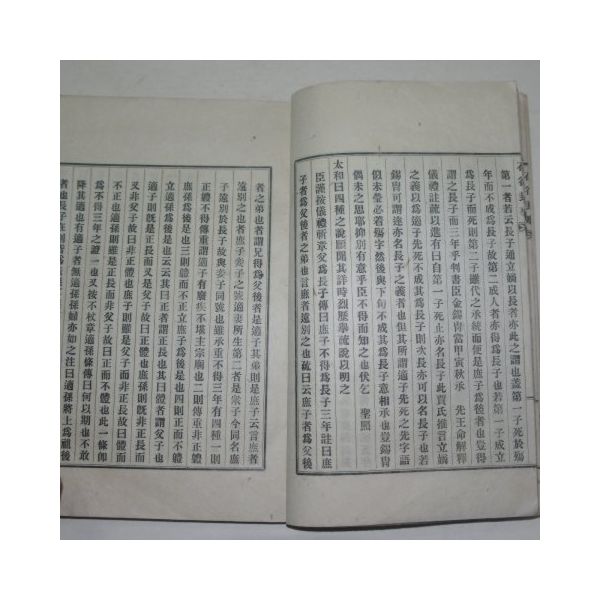 第一者若云長子通立嫡以長者亦此之謂也盖第一子死於殤
年而不成爲長子故第二成人者亦得爲長子也若第一子成立
爲長子而死則第二子雖代之承統而便是庶子爲後者也豈得
謂之長子而三年乎判書臣金錫胄當甲寅秋承 先王命解釋
儀禮註疏以進有曰自前第一子死止亦名長子此賈氏推言立嫡
之義以爲適子先死不成其爲長子則次長亦可以名長子也若
錫胄可謂迷亦名長子之義者也但其所謂適子先死之先字語
似未瑩必着殤字然後與下旬不成其爲長子意相承也豈錫胄
偶未之思耶抑別有意乎臣不得而知之也伏乞 聖照
太和曰四種之說願聞其詳時烈歷擧疏說以明之
臣謹按儀禮斬章父爲長子傳曰庶子不得爲長子三年註曰庶
子者爲父後者之弟也言庶者遠別之也疏曰云庶子者爲父後
者之弟也者謂兄得爲父後者是適子其弟則是庶子云言庶者
遠別之也者庶子妾子之號適妻所生第二者是衆子今同名庶
子遠別於長子故與妾子同號也雖承重不得三年有四種一則
正體不得傳重謂適子有廢疾不堪主宗廟也二則傳重非正體
庶孫爲後是也三則體而不正立庶子爲後是也四則正而不體
立適孫爲後是也云云其曰正者謂正長也其曰體者謂父子也
適子則旣是正長而又是父子故曰正體也庶孫則旣非正長而
又非父子故曰非正體也庶子則雖是父子而非正長故曰體而
不正也適孫則雖是正長而非父子故曰正而不體也此一條卽
爲不得三年之證一也又按不杖章適孫條傳曰何以期也不敢
降其適也有適子者無適孫孫婦亦如之注曰適孫將上爲祖後
者也長子在則皆爲庶孫